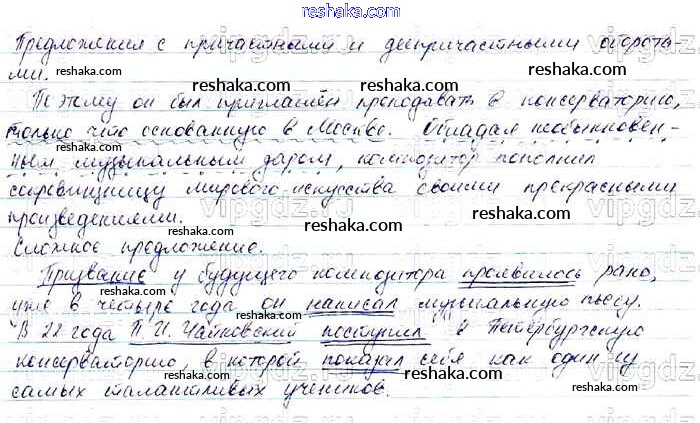 reshaka.com
Предложения с причастными и деепричастными оборота-
ми.
reshaka.com reshaka.com
Поэтому он был приглашён преподавать в консерваторию,
reshaka.com
только что основанную в Москве. Обладая необыкновен-
ным музыкальным даром, композитор пополнил
reshaka.com reshaka.com
сокровищницу мирового искусства своими прекрасными
произведениями.
reshaka.com
Сложное предложение.
reshaka.com
Призвание у будущего композитора проявилось рано,
reshaka.com
уже в четыре года он написал музыкальную пьесу.
reshaka.com
В 22 года П.И. Чайковский поступил в Петербургскую
консерваторию, в которой показал себя как один из
reshaka.com
самых талантливых учеников.
reshaka.com
vipgdz.ru